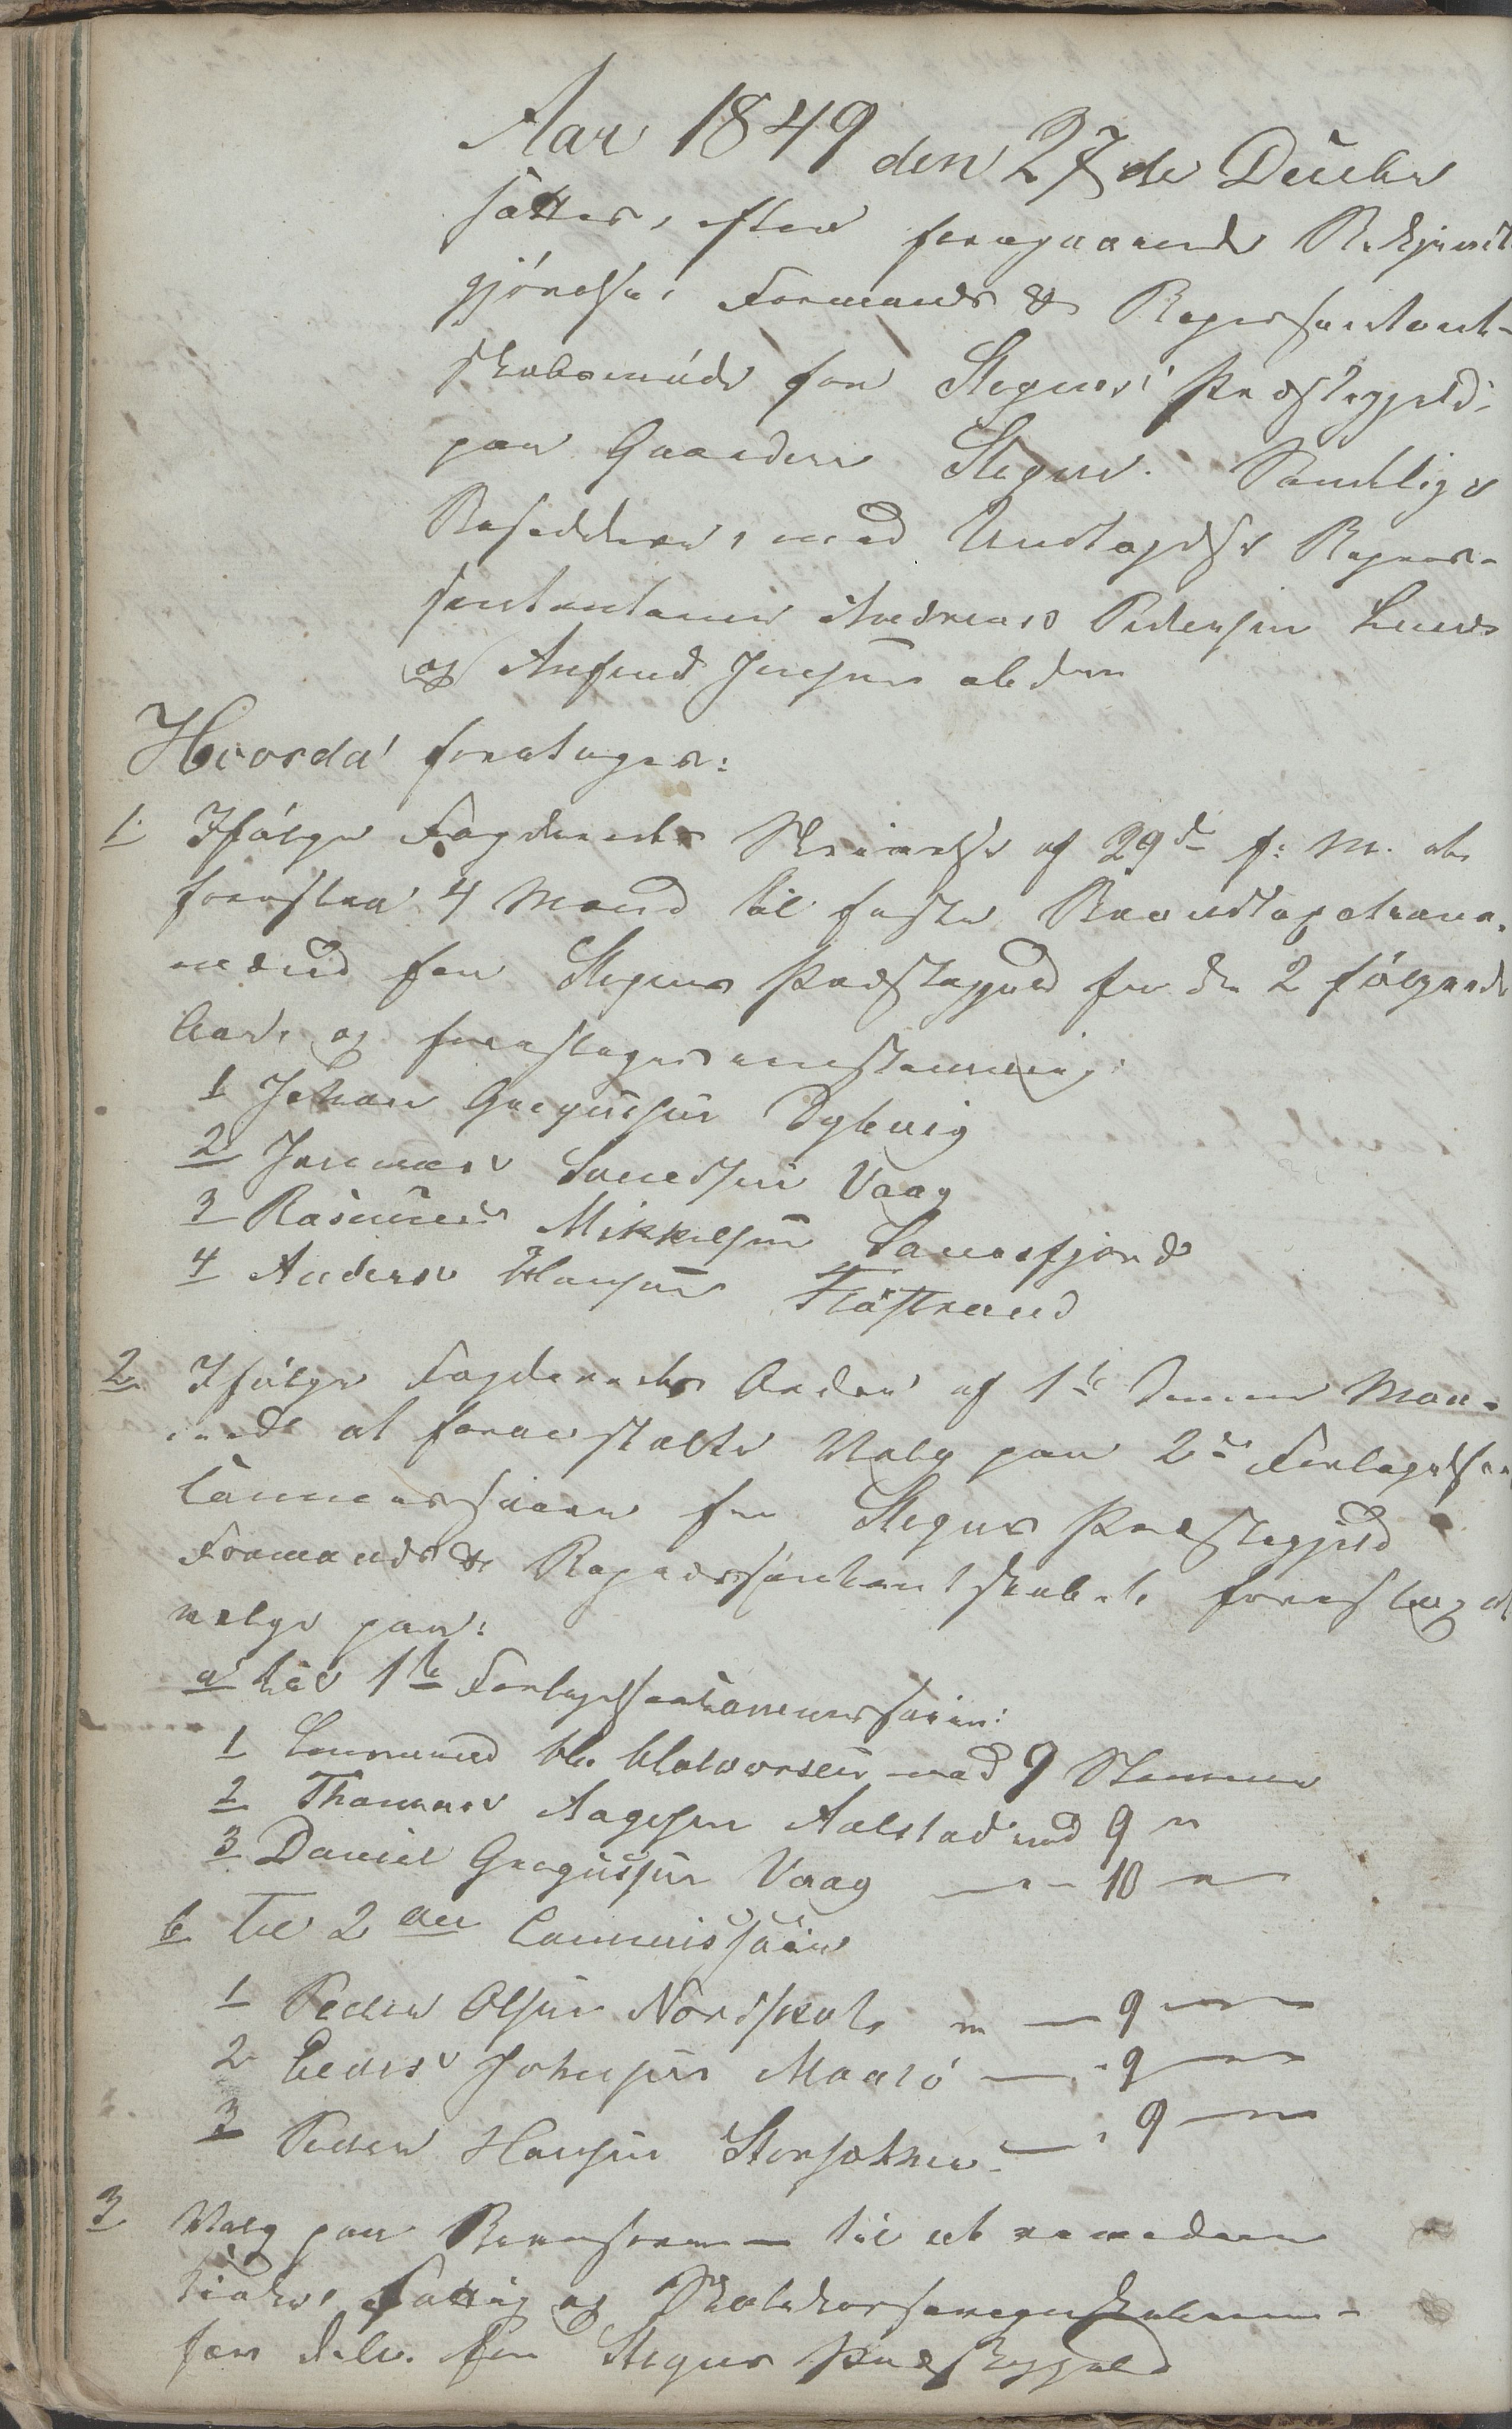 Aar 1849 den 27de Decbr
sattes, efter foregaaende Bekjendt
gjørelse, Formands & Repræsentant-
skabsmøde for Stegens Præstegjeld,
paa Gaarden Stegen. Samtlige
Vare tilstede, med Undtagelse Repræ-
sentanterne Andreas Pedersen Lund
og Arnfind Jensen
Hvorda foretages:
1. Ifølge Fogderiets Skrivelse af 29de f: M. at
foreslaa 4 Mænd til faste
mænd for Stegens Præstegjeld for de 2 følgende
Aar, og foreslages eenstemmig:
1 Johan Gregusen Dybvig
2 Jeremias Hanssen Vaag
3 Rasmus Mikkelsen Hannsfjord
4 Anders Hansen Fløstrand
2. Ifølge Fogderiets Order af 1ste denne Maa-
ned at foranstalte Valg paa 2de Forligelses
Commissioner for Stegens Præstegjeld
Formands & Repræsentantskabets foreslag at
velge paa:
a til 1ste Forligelsescommission:
1 Hr. Halvorsen med 9 Stemmer
2 Thomas Aagesen Aalstad med 9 "
3 Daniel Gregusen Vaag — 10 —
b Til 2den Commission
1 Peder Olsen Nordskot — 9 —
2 Johnsen Maalø — 9 —
3 Peder Hansen — 9 —
3 Valg paa til at
Kirke, Fattig og
for Stegens Præstegjeld